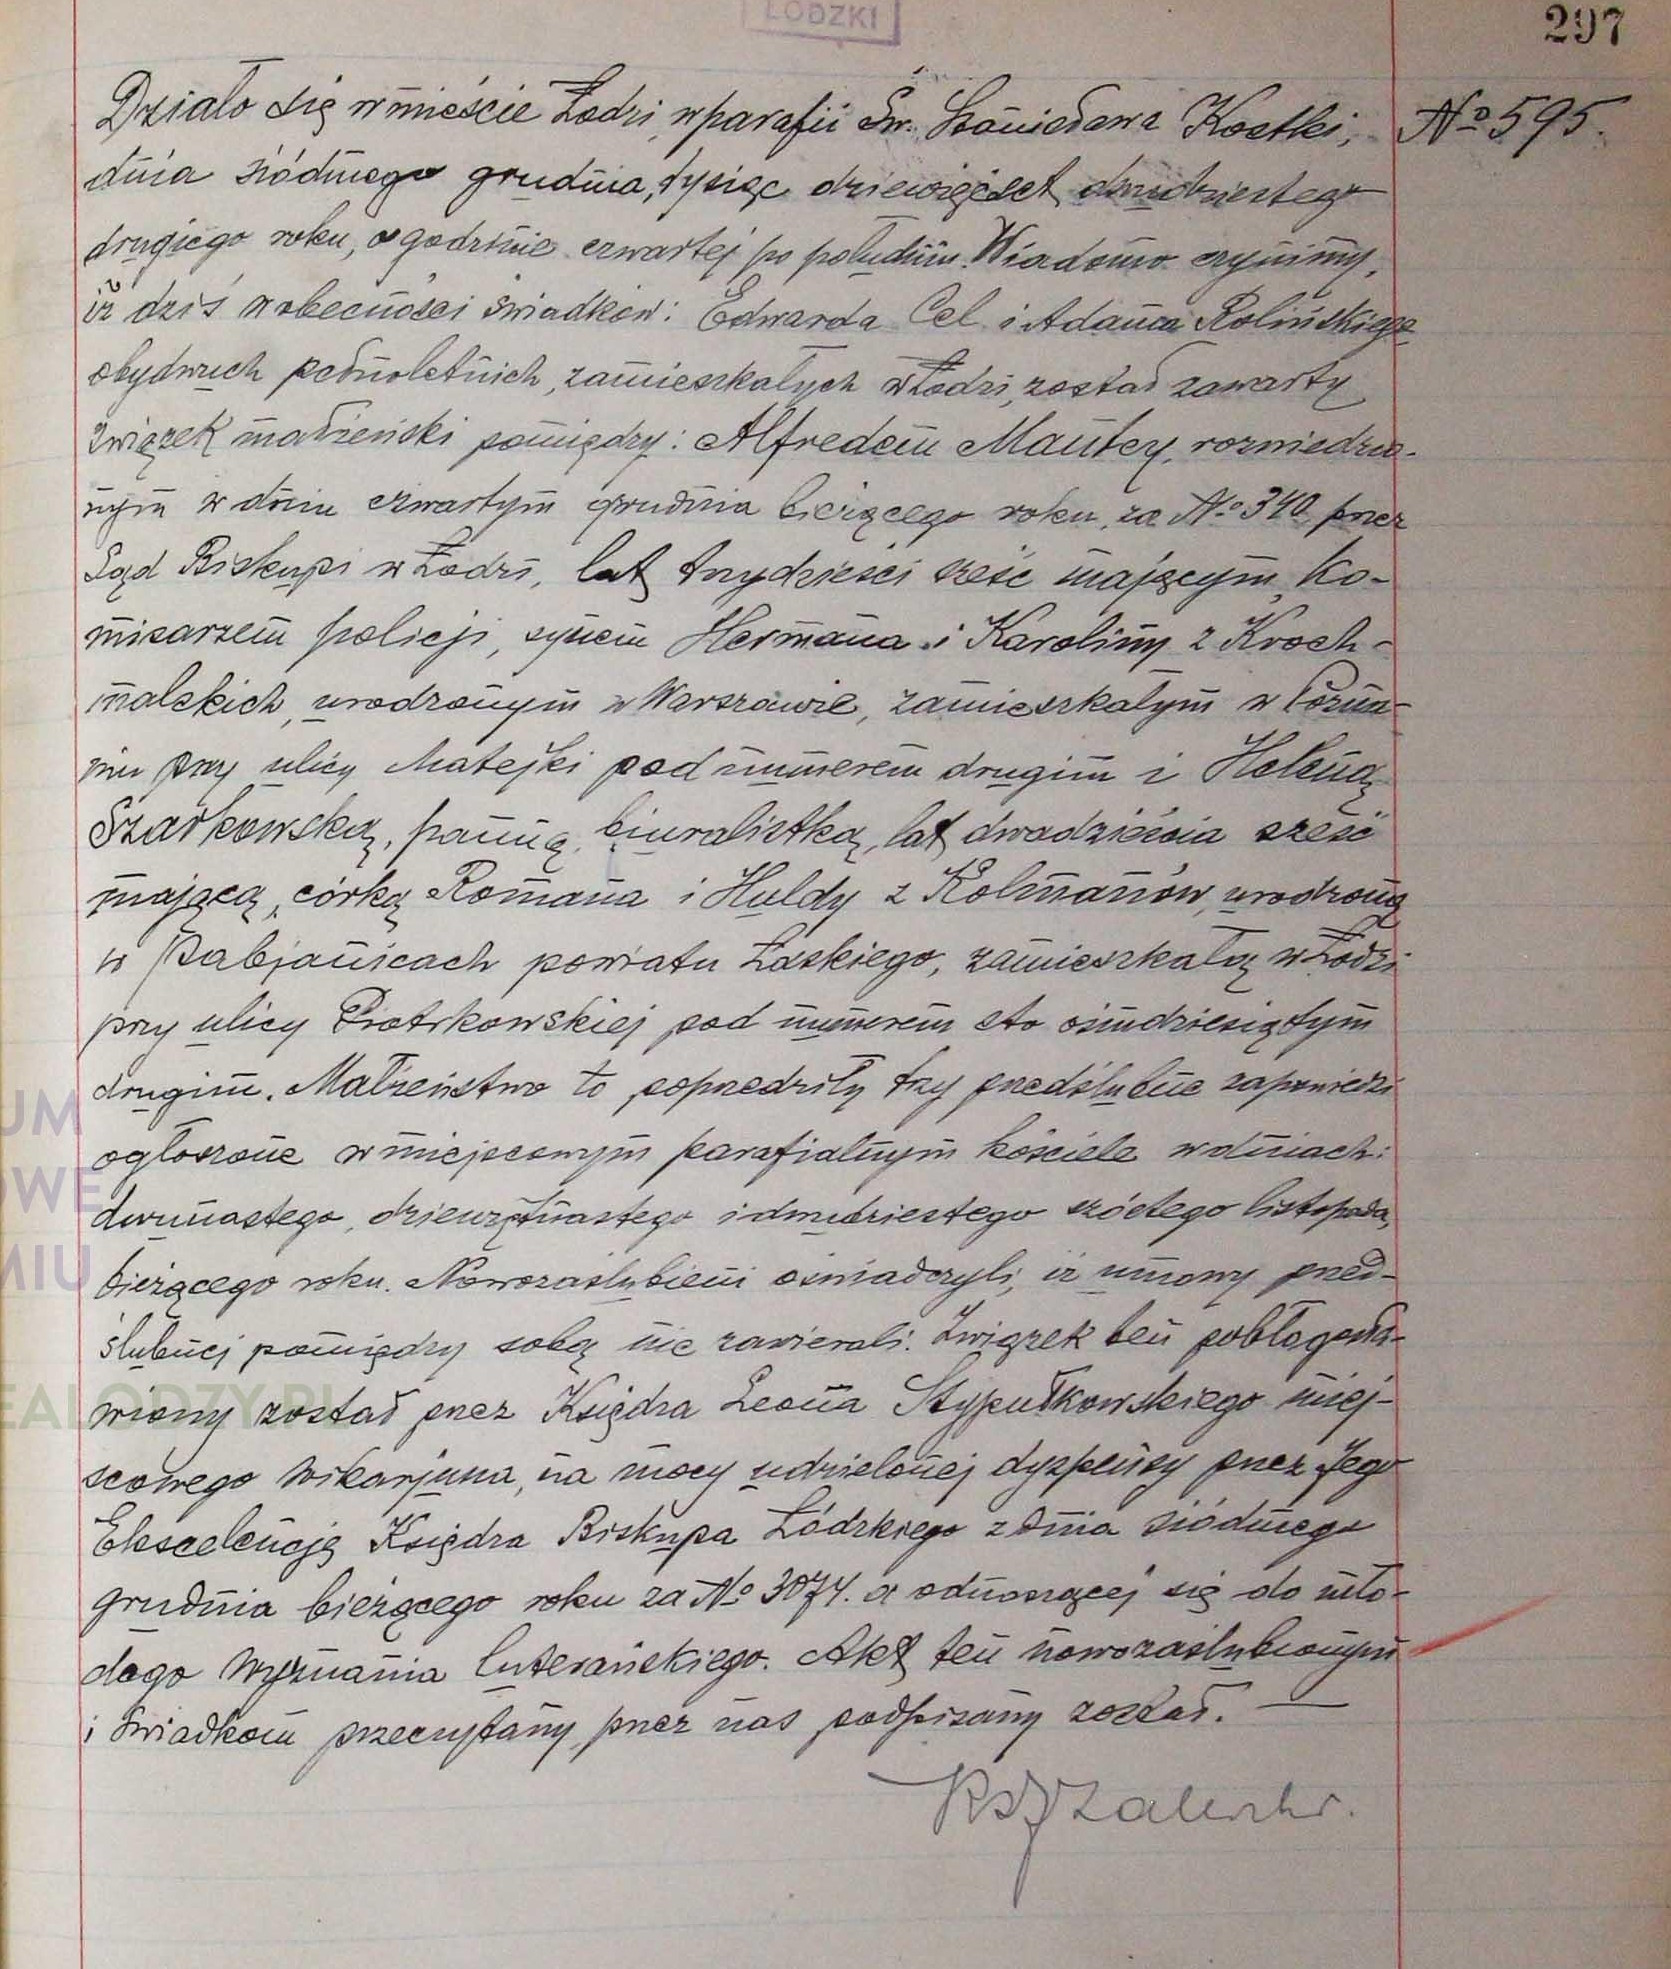 ŁÓDZKI
297
Działo się w mieście Łodzi, w parafii Św. Stanisława Kostki, № 595.
dnia siódmego grudnia, tysiąc dziewięćset dwudziestego
drugiego roku, o godzinie czwartej po południu. Wiadomo czynimy,
iż dziś w obecności świadków: Edwarda Cel i Adama Rolińskiego
obydwuch pełnoletnich, zamieszkałych w Łodzi, został zawarty
związek małżeński pomiędzy: Alfredem Mantey, rozwiedzio-
nym w dniu czwartym grudnia bieżącego roku, za № 340, przez
Sąd Biskupi w Łodzi, lat trzydzieści sześć mającym, Ko-
misarzem policji, synem Hermana i Karoliny z Kroch-
malskich, urodzonym w Warszawie, zamieszkałym w Pozna-
niu przy ulicy Matejki pod numerem drugim i Heleną
Szarkowską, panną, biuralistką, lat dwadzieścia sześć
mającą, córką Romana i Huldy z Kolmanów, urodzoną
w Pabjanicach powiatu Łaskiego, zamieszkałą w Łodzi
przy ulicy Piotrkowskiej pod numerem sto ośmdziesiątym
drugim. Małżeństwo to poprzedziły trzy przedślubne zapowiedzi
ogłoszone w miejscowym parafialnym kościele w dniach:
dwunastego, dziewiętnastego i dwudziestego szóstego listopada,
bieżącego roku. Nowozaślubieni oświadczyli, iż umowy przed-
ślubnej pomiędzy sobą nie zawierali. Związek ten pobłogosła-
wiony został przez Księdza Leona Stypułkowskiego miej-
scowego wikarjusza, na mocy udzielonej dyspensy przez Jego
Ekscelencję Księdza Biskupa Łódzkiego z dnia siódmego
grudnia bieżącego roku za № 3074. a odnoszącej się do mło-
dego wyznania luterańskiego. Akt ten nowozaślubionym
i świadkom przeczytany, przez nas podpisany został. —